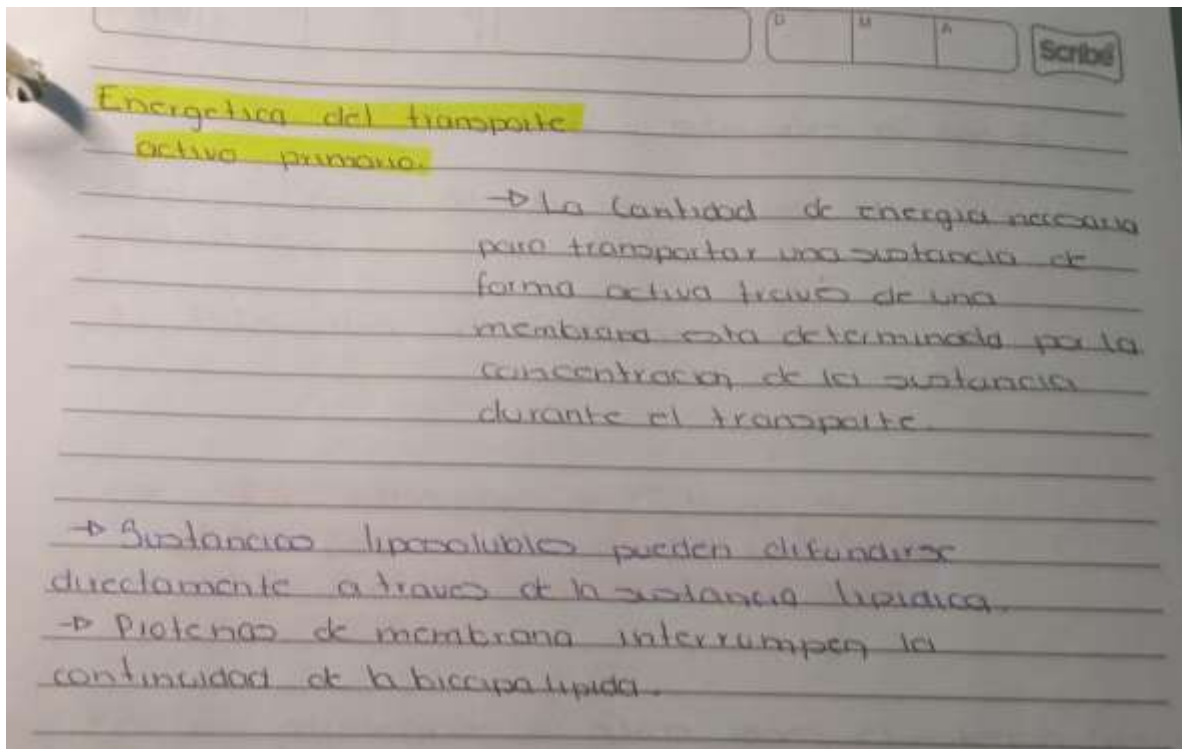 D M A
Scribe
Energetica del transporte
activo primario.
→ La Cantidad de energia necesaria
para transportar una sustancia de
forma activa traves de una
membrana esta determinada por la
concentracion de la sustancia
durante el transporte.
→ Sustancias liposolubles pueden difundirse
directamente a traves de la sustancia lipidica.
→ Proteinas de membrana interrumpen la
continuidad de la bicapa lipida.